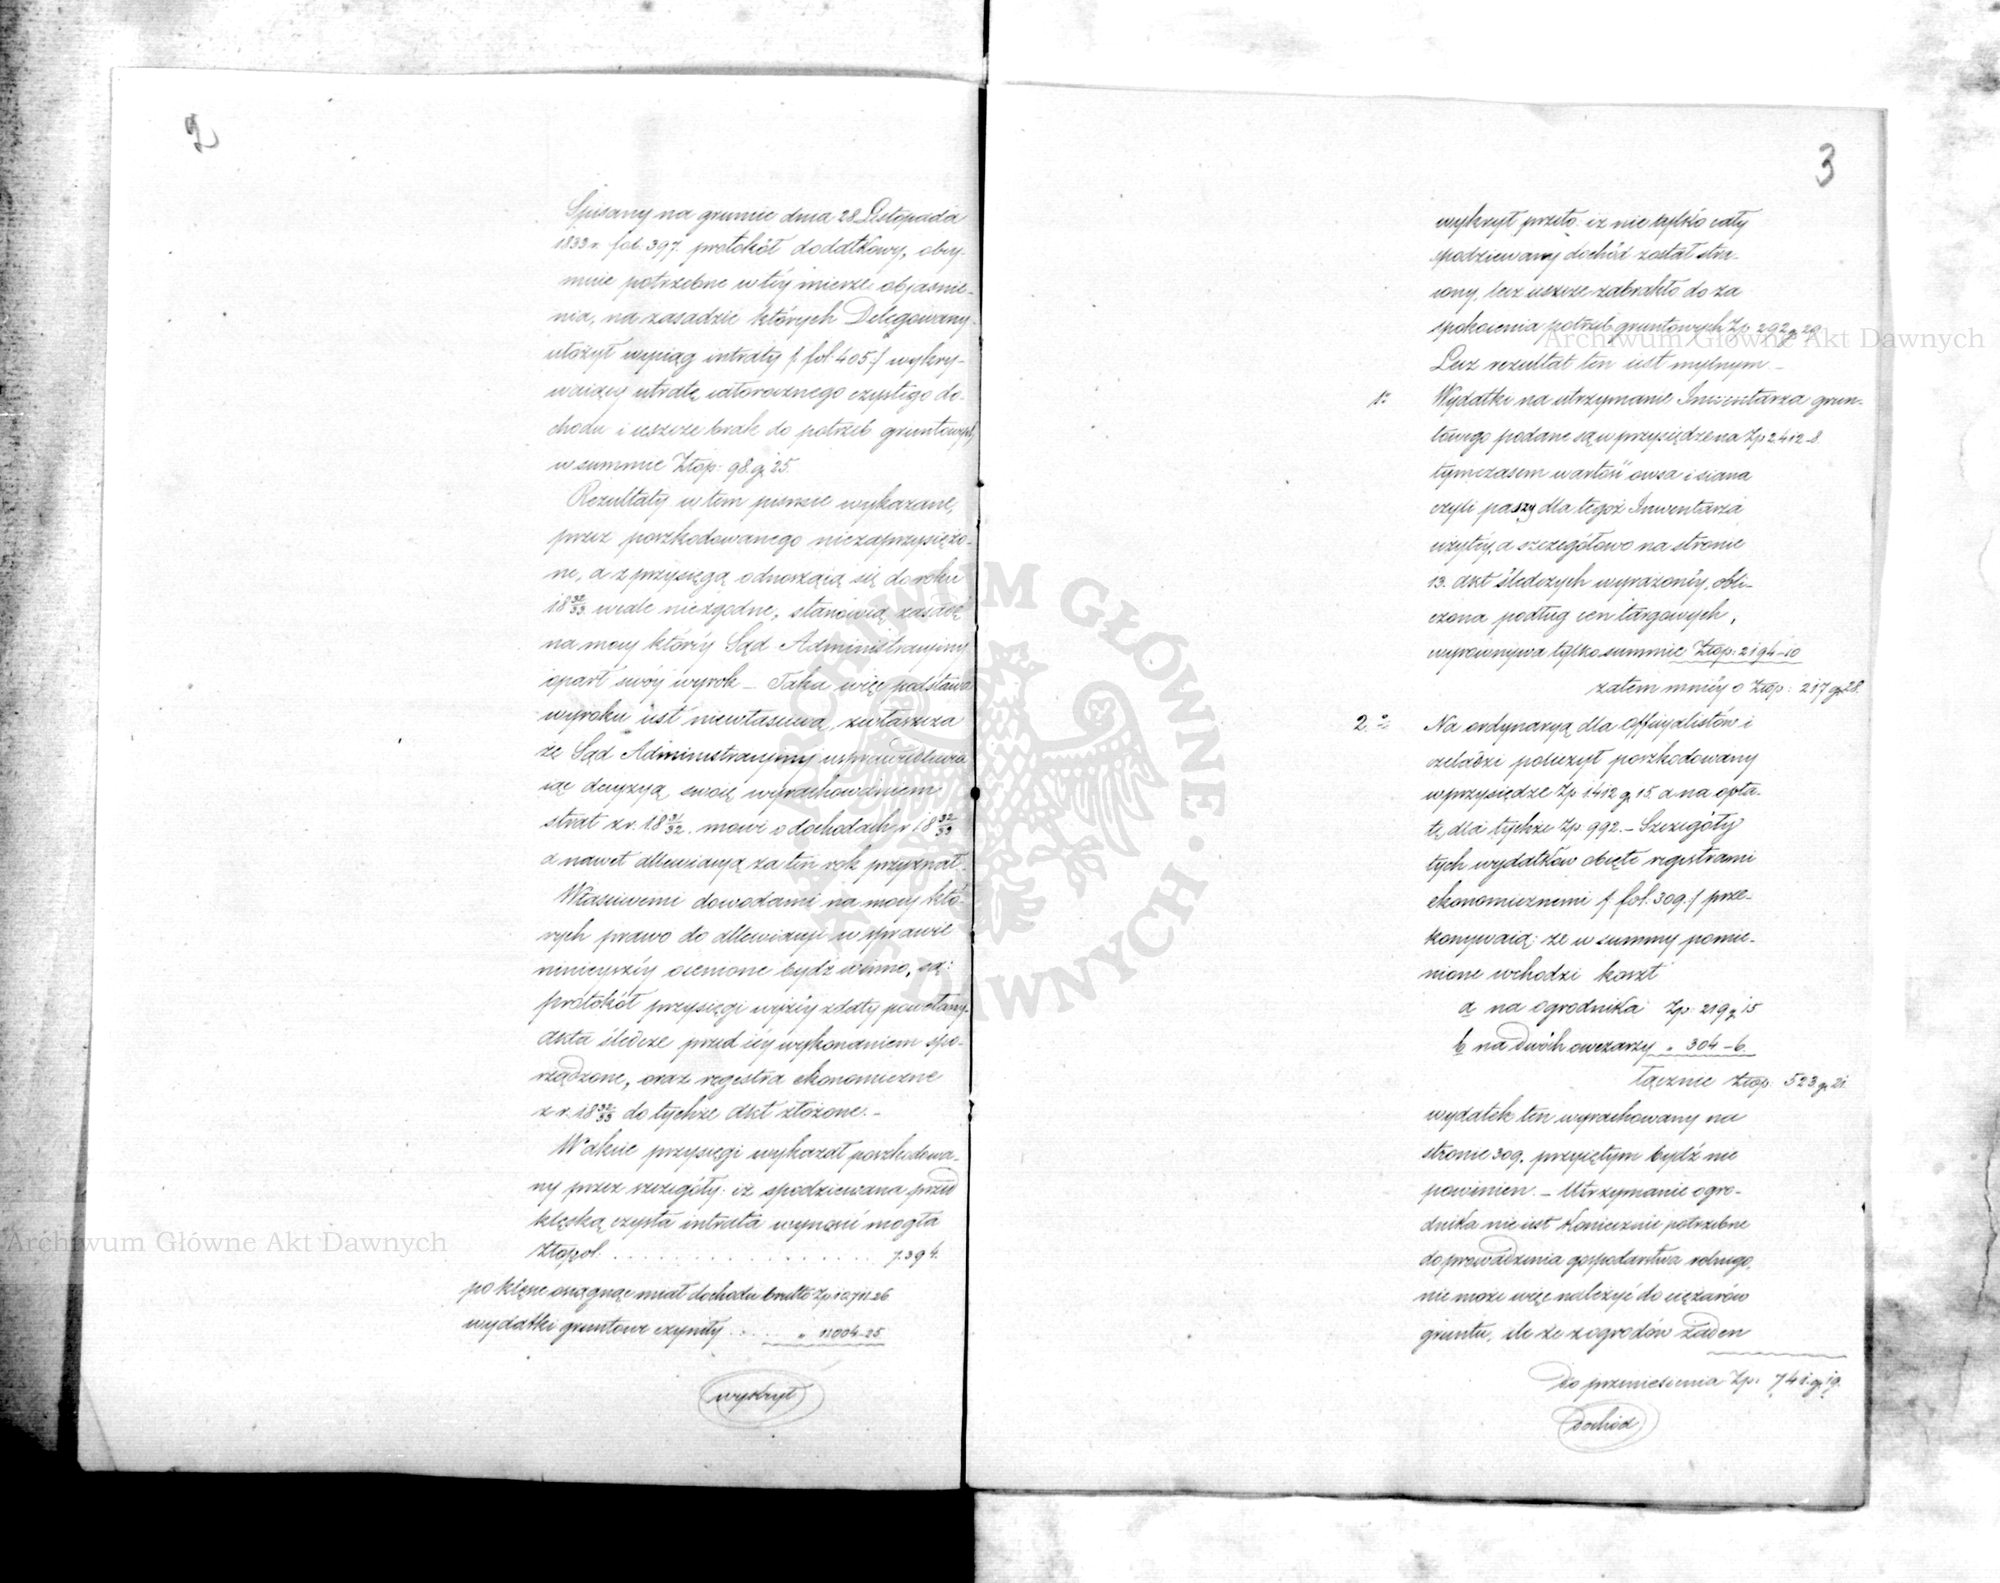 2
Spisany na gruncie dnia 28 Listopada
1833 r. fol. 397. protokół doddtkowy, obey-
muie potrzebne w téy mierze obiasnie-
nia, na zasadzie których Delegowany
ułożył wyciąg intraty /: fol: 405:/ wykry-
waiący utratę całorocznego czystego do-
chodu i ieszcze brak do potrzeb gruntowych,
w summie Złop: 98. g 25.
Rezultaty w tem pismie wykazane,
przez poszkodowanego niezaprzysiężo-
ne, a z przysięgą odnoszącą się do roku
18 32/33 wcale niezgodne, stanowią zasadę
na mocy któréy Sąd Administracyiny
oparł swóy wyrok – Taka więc podstawa
wyroku iest niewłasciwą, zwłaszcza
że Sąd Administracyiny usprawiedliwia
iąc decyzyą swoię wyrachowaniem
strat z r. 18 31/32. mowi o dochodach r 18 32/33
a nawet allewiacyą za ten rok przyznał.
Właściwemi dowodami na mocy któ-
rych prawo do allewiacyi w sprawie
ninieyszéy ocenione bydź winno, są:
protokół przysięgi wyżéy z daty powołany,
akta śledcze przed iéy wykonaniem spo-
rządzone, oraz regestra ekonomiczne
z r. 18 32/33 do tychże akt złożone. –
W akcie przysięgi wykazał poszkodowa-
ny przez szczegóły: iż spodziewana przed
klęską czysta intrata wynieść mogła
Złopol. . . . . . . . . . . . . . . . . . 7.394.
po klęsce osiągnąć miał dochodu brutto Zp 10711. 26
wydatki gruntowe czyniły . . . . . „ 11004–25.
wykrył
3
wykrył przeto iż nie tylko cały
spodziewany dochód został stra-
cony, lecz ieszcze zabrakło do za
spokoienia potrzeb gruntowych Zp 292 g 29
Lecz rezultat ten iest mylnym –
1o Wydatki na utrzymanie Inwentarza grun-
towego podane są w przysiędze na Zp 2412–8
tymczasem wartość owsa i siana
czyli paszy dla tegoż Inwentarza
użytéy, a szczegółowo na stronie
13. akt śledczych wyrażonéy, obli-
czona podług cen targowych,
wyrównywa tylko summie Złop: 2194–10
zatem mniéy o Złop: 217 g 28.
2.o Na ordynaryą dla officyalistów i
czeladzi policzył poszkodowany
w przysiędze Zp 1412 g 15. a na opła-
tę dla tychże Zp. 992. – Szczegóły
tych wydatków obięte regestrami
ekonomicznemi /: fol: 309:/ prze-
konywaią: że w summy pomie-
nione wchodzi koszt
a na ogrodnika Zp. 219 g 15
b na dwóch owczarzy „ 304–6.
Łącznie Złop. 523 g 21
wydatek ten wyrachowany na
stronie 309. przyiętym bydź nie
powinien. – Utrzymanie ogro-
dnika nie iest koniecznie potrzebne
do prowadzenia gospodarstwa rolnego,
nie może więc należyć do ciężarów
gruntu, ile że z ogrodów żaden
Do przeniesienia Zp. 741. g 19.
dochód
Archiwum Główne Akt Dawnych
Archiwum Główne Akt Dawnych
ARCHIWUM GŁÓWNE AKT DAWNYCH